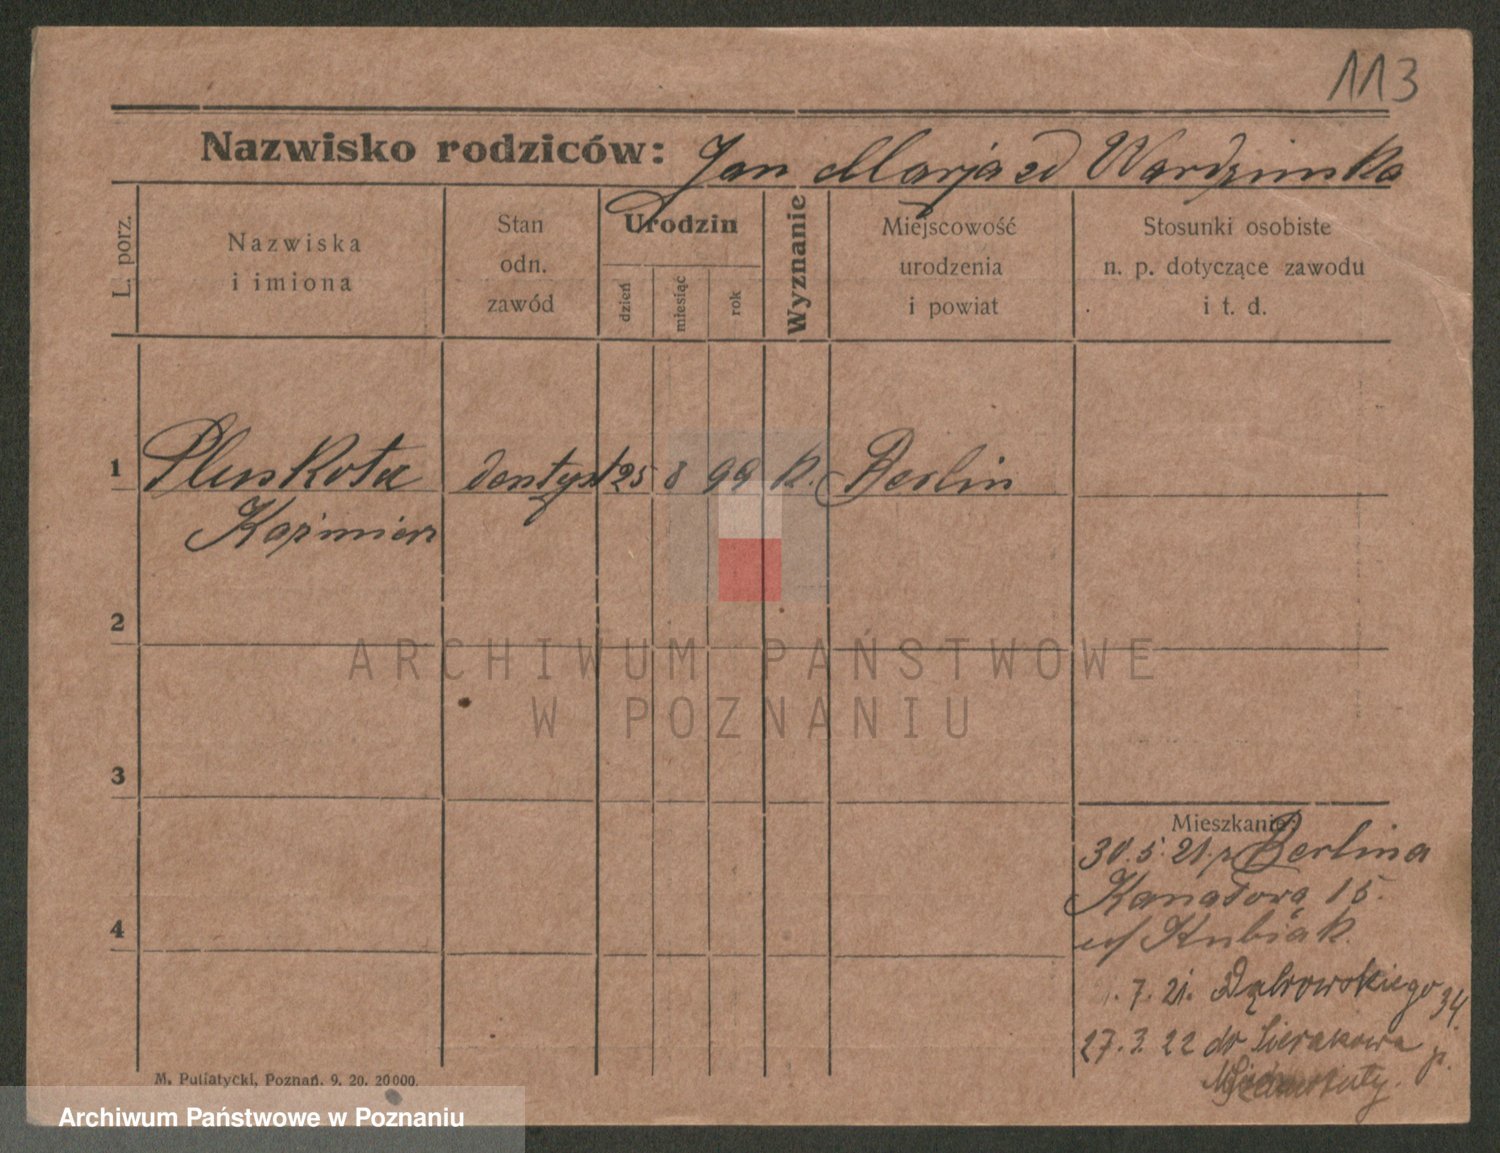 113
Nazwisko rodziców: Jan Marja zd Wardzinska
L. porz.
Nazwiska
i imiona
Stan
odn.
zawód
Urodzin
dzień
miesiąc
rok
Wyznanie
Miejscowość
urodzenia
i powiat
Stosunki osobiste
n. p. dotyczące zawodu
i t. d.
1 Pluskota dentyst 25 8 99 k. Berlin
Kaźmierz
2
ARCHIWUM PAŃSTWOWE
W POZNANIU
3
Mieszkanie:
30. 5. 21. p Berlina
Kanałowa 15.
4
u/ Kubiak.
7. 21. Dąbrowskiego 34.
27. 3. 22 do Sierakowa p.
M. Putiatycki, Poznań. 9. 20. 20000.
Archiwum Państwowe w Poznaniu